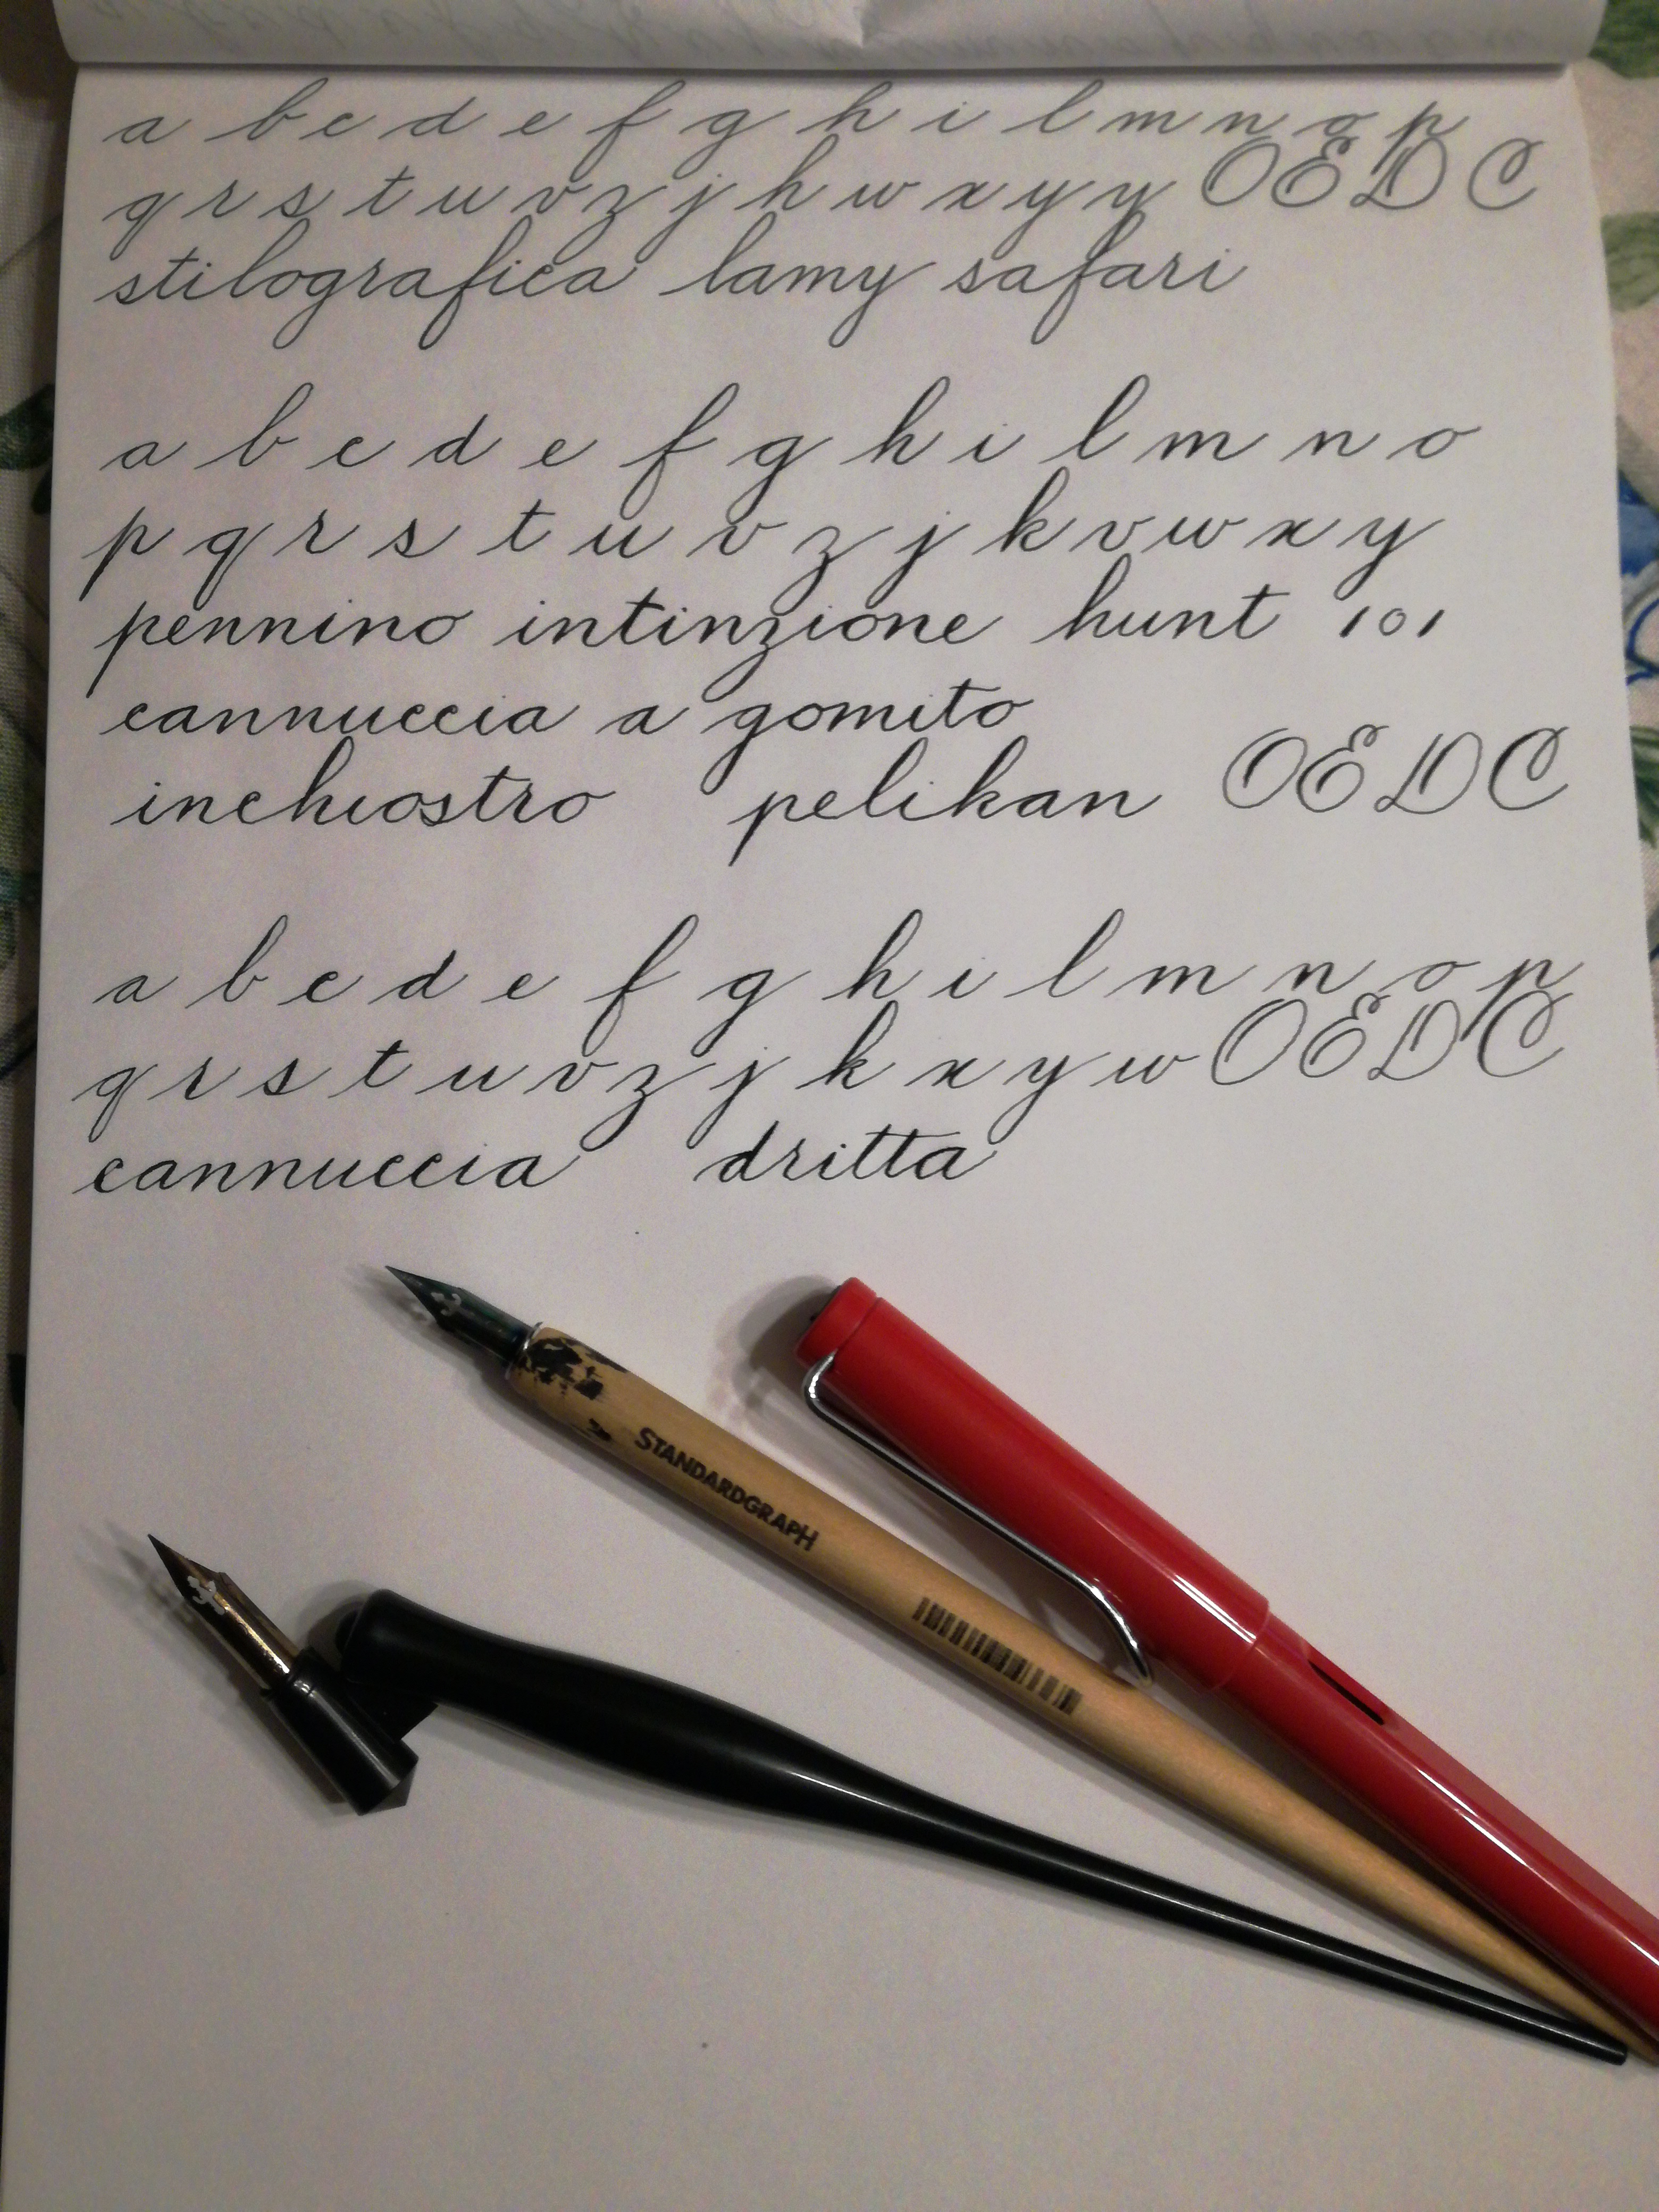 a b c d e f g h i l m n o p
q r s t u v z j h w x y y O E D C
stilografica lamy safari
a b c d e f g h i l m n o
p q r s t u v z j k v w x y
pennino intinzione hunt 101
cannuccia a gomito
inchiostro pelikan O E D C
a b c d e f g h i l m n o p
q r s t u v z j k x y w O E D C
cannuccia dritta
STANDARDGRAPH